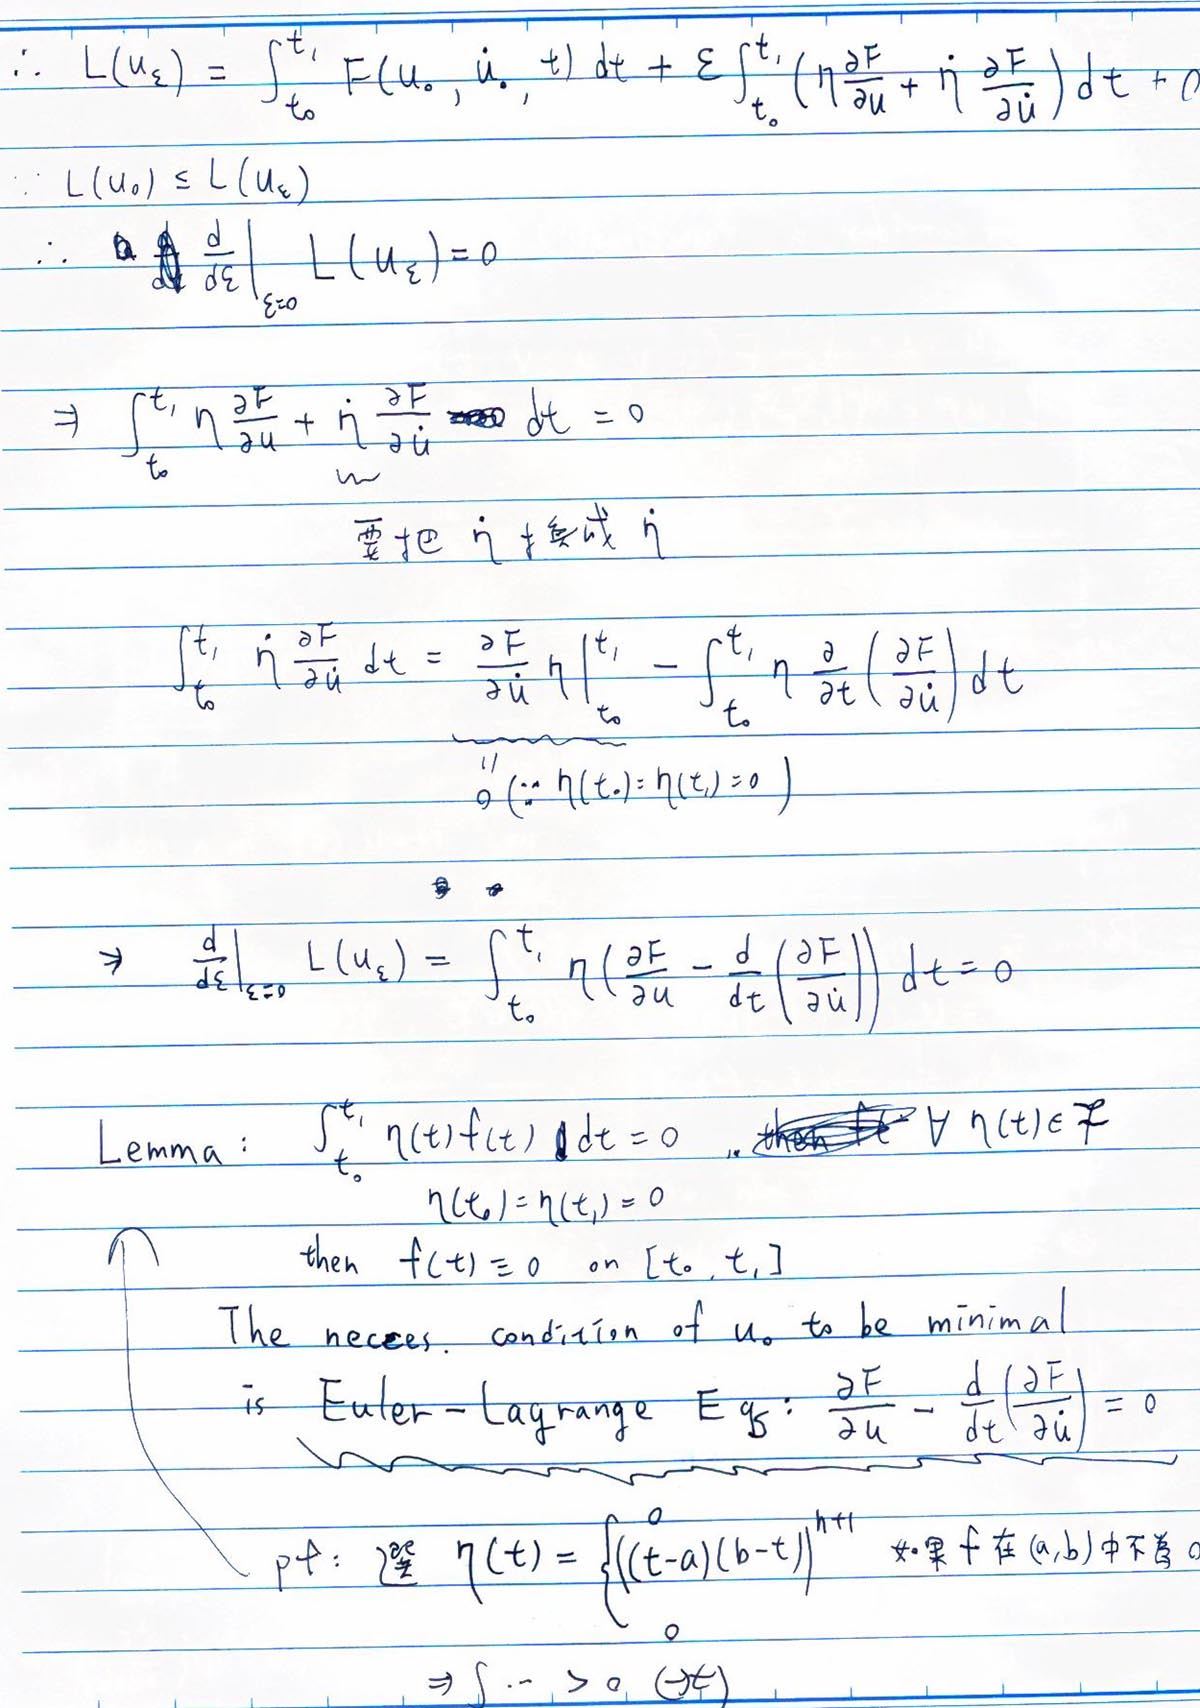 ∴ L(u_ε) = ∫_{t₀}^{t₁} F(u₀, u̇₀, t) dt + ε ∫_{t₀}^{t₁} (η ∂F/∂u + η̇ ∂F/∂u̇) dt + 0
∵ L(u₀) ≤ L(u_ε)
∴ d/dε |_{ε=0} L(u_ε) = 0
⇒ ∫_{t₀}^{t₁} η ∂F/∂u + η̇ ∂F/∂u̇ dt = 0
要把 η̇ 换成 η̇
∫_{t₀}^{t₁} η̇ ∂F/∂u̇ dt = ∂F/∂u̇ η |_{t₀}^{t₁} - ∫_{t₀}^{t₁} η ∂/∂t (∂F/∂u̇) dt
0 (∵ η(t₀) = η(t₁) = 0)
⇒ d/dε |_{ε=0} L(u_ε) = ∫_{t₀}^{t₁} η (∂F/∂u - d/dt (∂F/∂u̇)) dt = 0
Lemma: ∫_{t₀}^{t₁} η(t) f(t) dt = 0 ,, ∀ η(t) ∈ F
η(t₀) = η(t₁) = 0
then f(t) ≡ 0 on [t₀, t₁]
The necces. condition of u₀ to be minimal
is Euler-Lagrange Eqs: ∂F/∂u - d/dt (∂F/∂u̇) = 0
pf: 選 η(t) = { 0
((t-a)(b-t))^{n+1} 如果 f 在 (a,b) 中不為 0
0
⇒ ∫ ... > 0